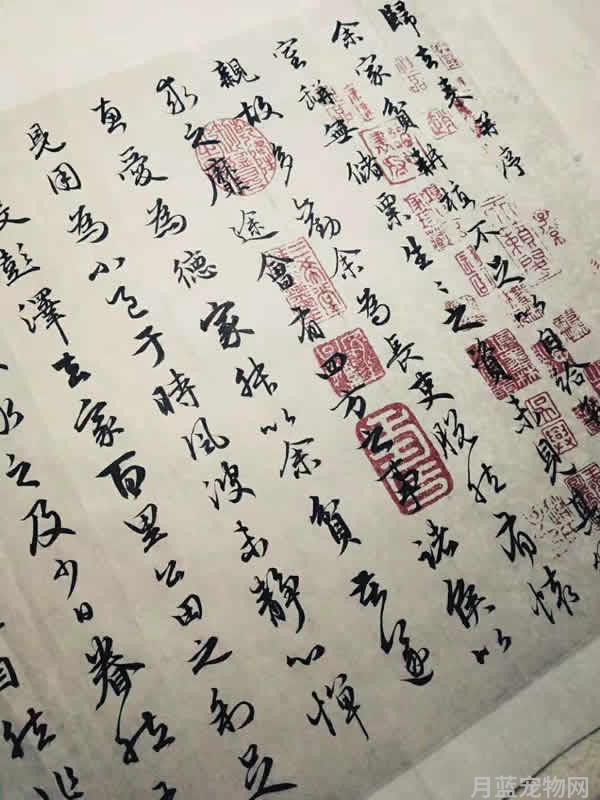 歸去來兮序
余家貧耕植不足以自給
室瓶無儲粟生〻之資未見其
親故多勸余為長吏脫然有懷
求之靡途會有四方之事諸侯以
惠愛為德家叔以余貧苦遂
見用為小邑于時風波未靜心憚
役彭澤去家百里公田之利足
求之及少日眷然
自然
月蓝宠物网